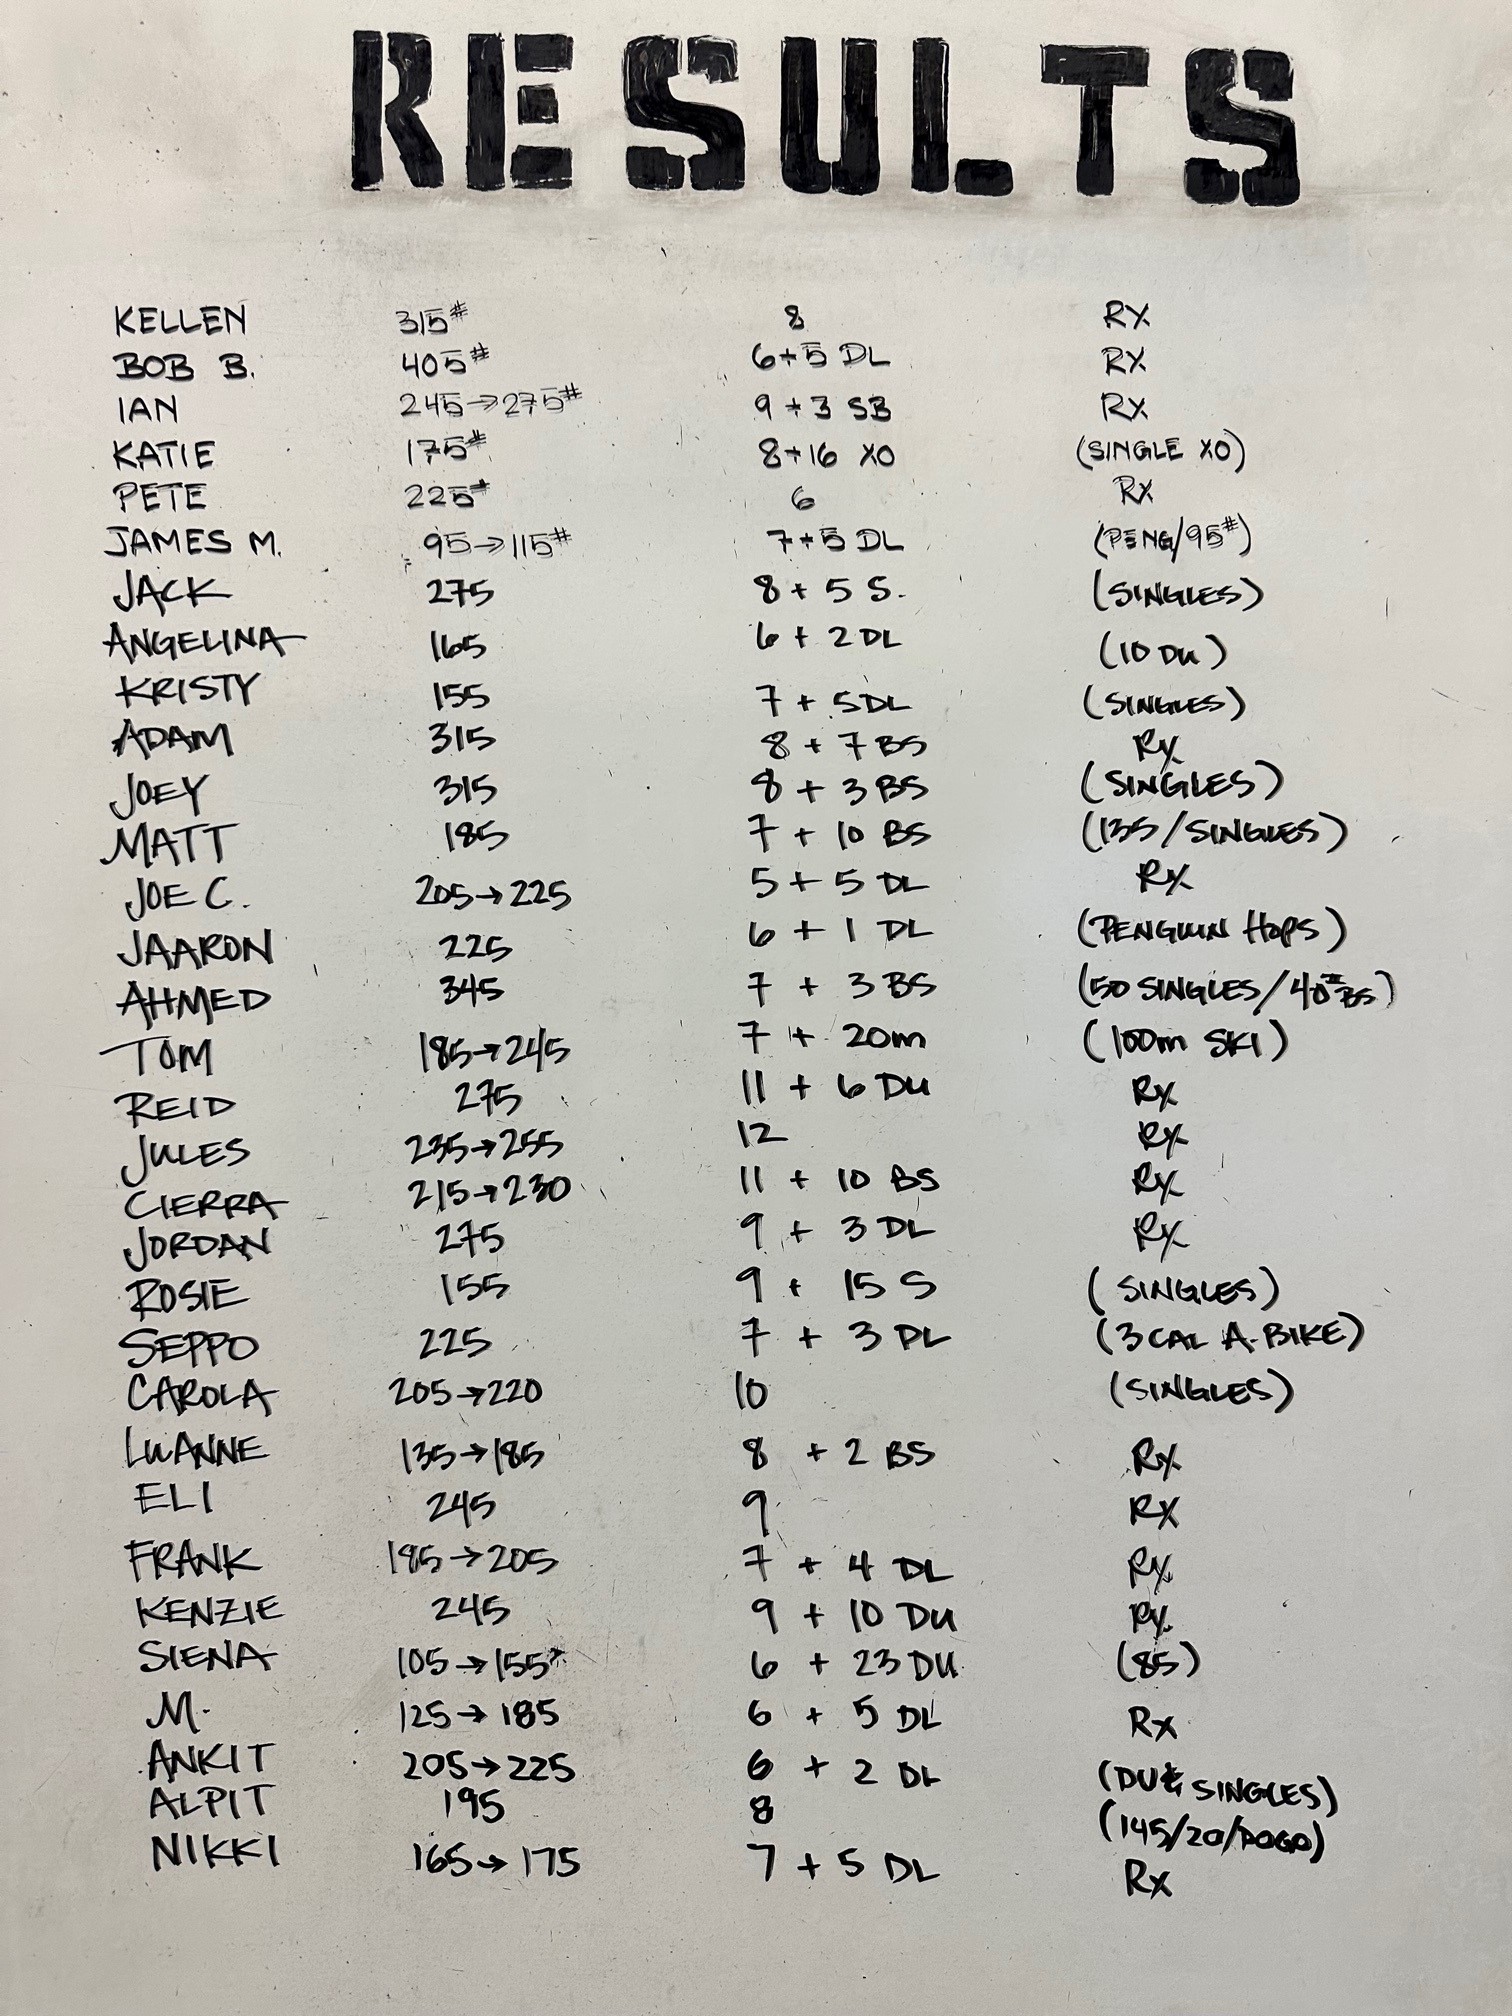 RESULTS
KELLEN 315# 8 RX
BOB B. 405# 6+5 DL RX
IAN 245→275# 9+3 SB RX
KATIE 175# 8+16 XO (SINGLE XO)
PETE 225# 6 RX
JAMES M. 95→115# 7+5 DL (PENG/95#)
JACK 275 8 + 5 S. (SINGLES)
ANGELINA 165 6 + 2 DL (10 DU)
KRISTY 155 7 + 5DL (SINGLES)
ADAM 315 8 + 7 BS Rx
JOEY 315 8 + 3 BS (SINGLES)
MATT 185 7 + 10 BS (135/SINGLES)
JOE C. 205→225 5 + 5 DL Rx
JAARON 225 6 + 1 DL (PENGUIN HOPS)
AHMED 345 7 + 3 BS (50 SINGLES/40# BS)
TOM 185→245 7 + 20m (100m SKI)
REID 275 11 + 6 DU Rx
JULES 235→255 12 Rx
CIERRA 215→230 11 + 10 BS Rx
JORDAN 275 9 + 3 DL Rx
ROSIE 155 9 + 15 S (SINGLES)
SEPPO 225 7 + 3 DL (3 CAL A-BIKE)
CAROLA 205→220 10 (SINGLES)
LUANNE 135→185 8 + 2 BS Rx
ELI 245 9 RX
FRANK 185→205 7 + 4 DL Rx
KENZIE 245 9 + 10 DU Rx
SIENA 105→155* 6 + 23 DU (85)
M. 125→185 6 + 5 DL Rx
ANKIT 205→225 6 + 2 DL (DU & SINGLES)
ALPIT 195 8 (145/20/POGO)
NIKKI 165→175 7 + 5 DL Rx